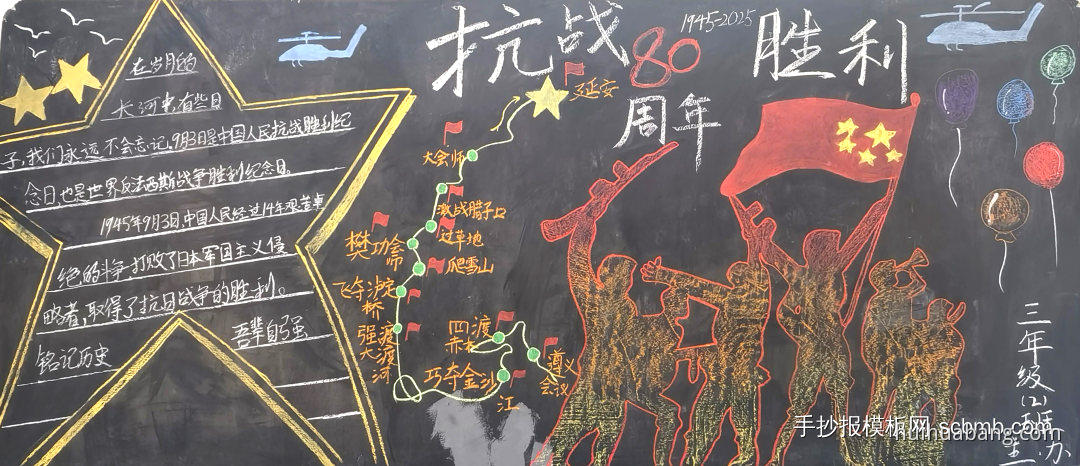 抗战80周年胜利
1945-2025
在岁月的
长河中,有些日
子,我们永远不会忘记。9月3日是中国人民抗战胜利纪
念日,也是世界反法西斯战争胜利纪念日。
1945年9月3日,中国人民经过14年艰苦卓
绝的斗争,打败了日本军国主义侵
略者,取得了抗日战争的胜利。
铭记历史
吾辈自强
延安
大会师
激战腊子口
过草地
懋功会
师
爬雪山
飞夺泸定
桥
强渡
大渡
河
四渡
赤水
巧夺金沙
江
遵义
会议
三年级(2)班
主办
手抄报模板网 scbmb.com
huihuabang.com